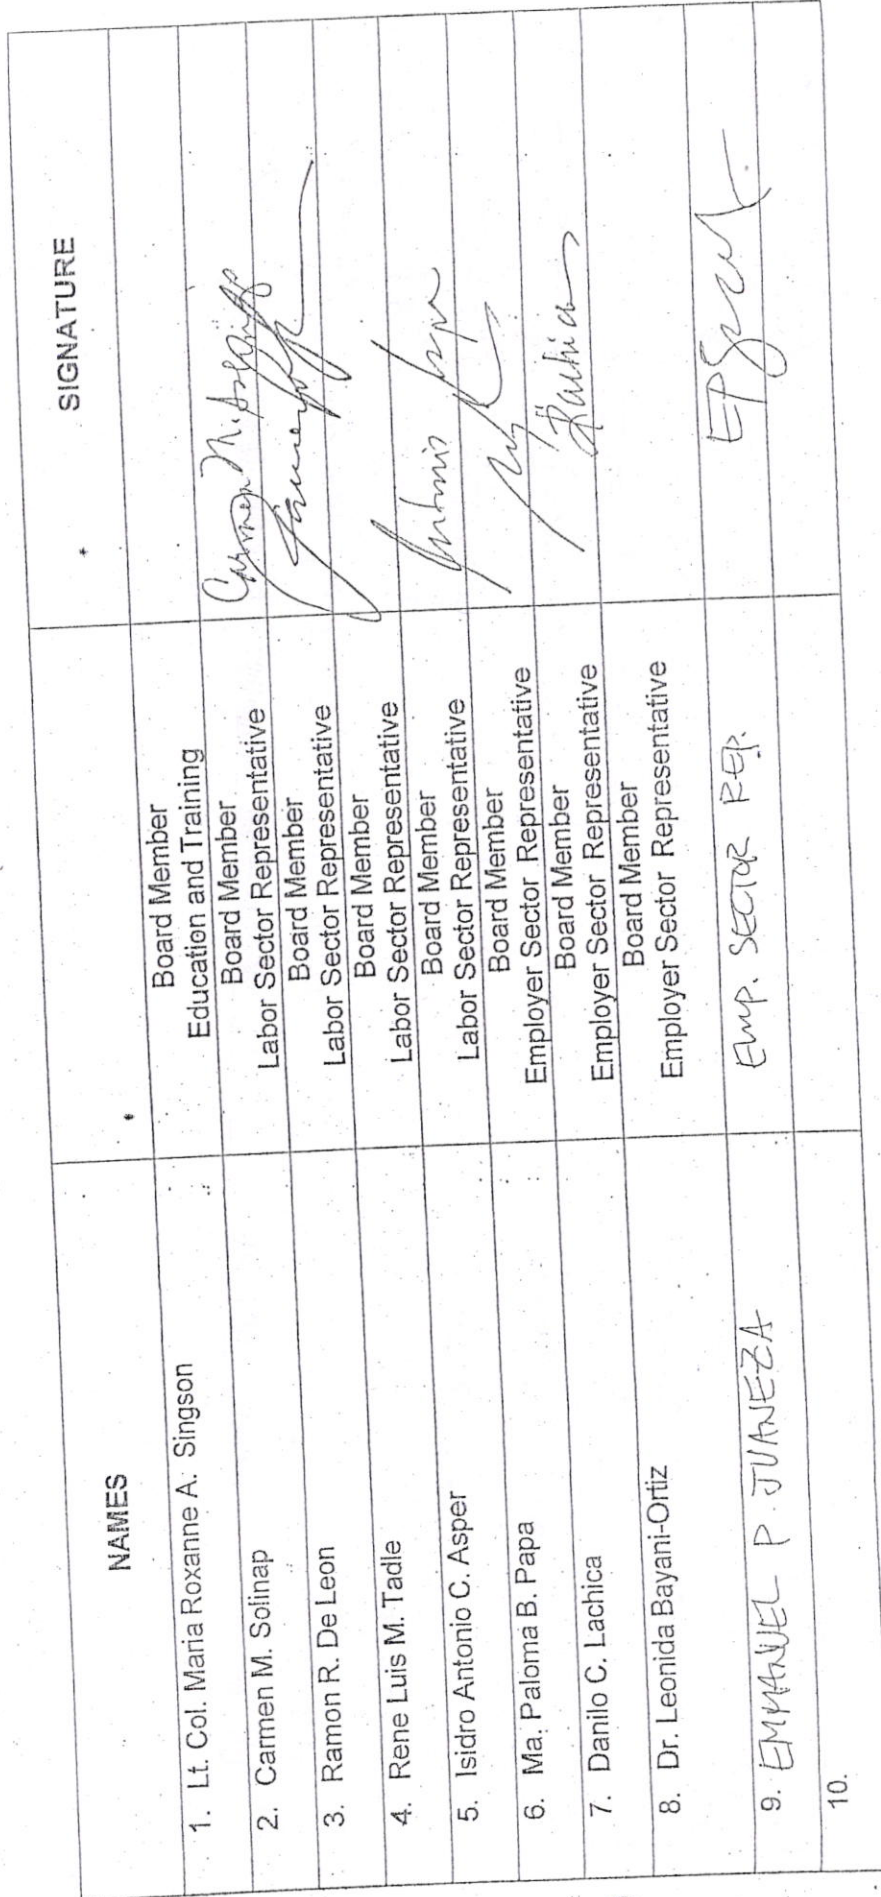 NAMES SIGNATURE
1. Lt. Col. Maria Roxanne A. Singson Board Member
Education and Training
2. Carmen M. Solinap Board Member Carmen M. Solinap
Labor Sector Representative
3. Ramon R. De Leon Board Member
Labor Sector Representative
4. Rene Luis M. Tadle Board Member
Labor Sector Representative
5. Isidro Antonio C. Asper Board Member Antonio Asper
Labor Sector Representative
6. Ma. Paloma B. Papa Board Member
Employer Sector Representative
7. Danilo C. Lachica Board Member Lachica
Employer Sector Representative
8. Dr. Leonida Bayani-Ortiz Board Member
Employer Sector Representative
9. EMMANUEL P. JUANEZA Emp. SECTOR REP.
10.